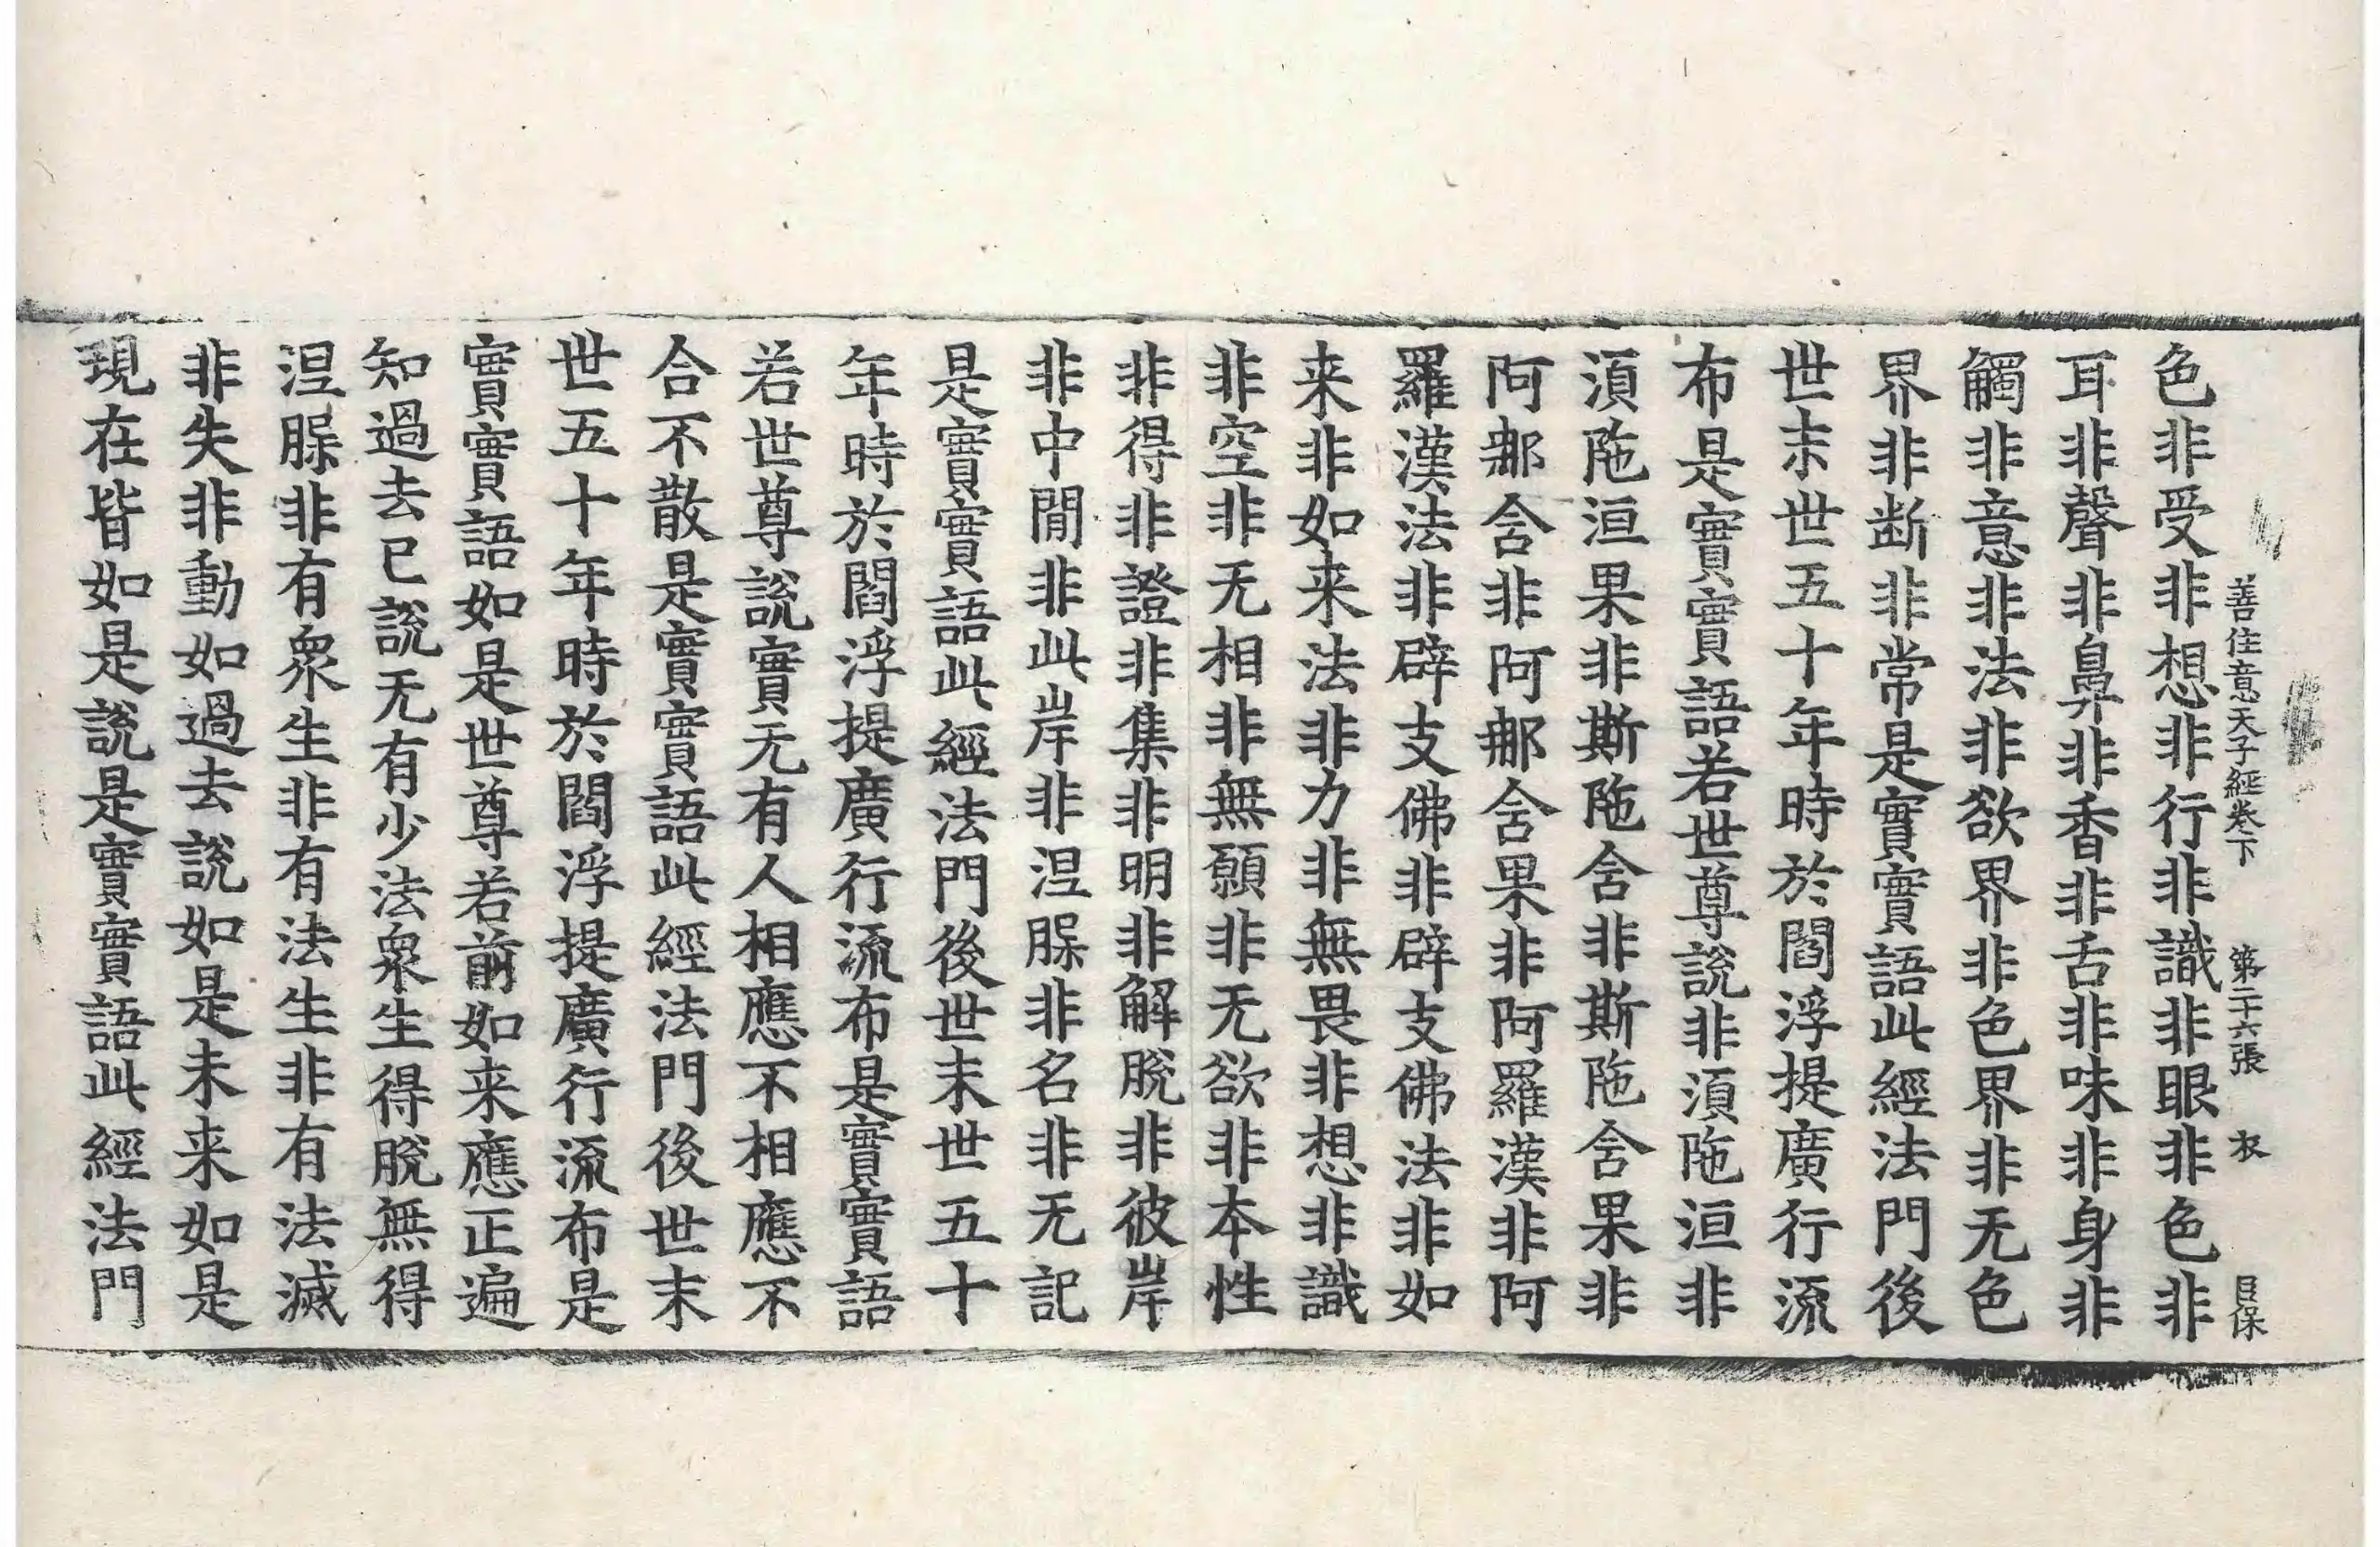 善住意天子經卷下　第二十六張　衣　目保
色非受非想非行非識非眼非色非
耳非聲非鼻非香非舌非味非身非
觸非意非法非欲界非色界非无色
界非断非常是實實語此經法門後
世末世五十年時於閻浮提廣行流
布是實實語若世尊說非湏陁洹非
湏陁洹果非斯陁含非斯陁含果非
阿那含非阿那含果非阿羅漢非阿
羅漢法非辟支佛非辟支佛法非如
来非如来法非力非無畏非想非識
非空非无相非無願非无欲非本性
非得非證非集非明非解脫非彼岸
非中閒非此岸非涅槃非名非无記
是實實語此經法門後世末世五十
年時於閻浮提廣行流布是實實語
若世尊說實无有人相應不相應不
合不散是實實語此經法門後世末
世五十年時於閻浮提廣行流布是
實實語如是世尊若前如来應正遍
知過去已說无有少法衆生得脫無得
涅槃非有衆生非有法生非有法滅
非失非動如過去說如是未来如是
現在皆如是說是實實語此經法門